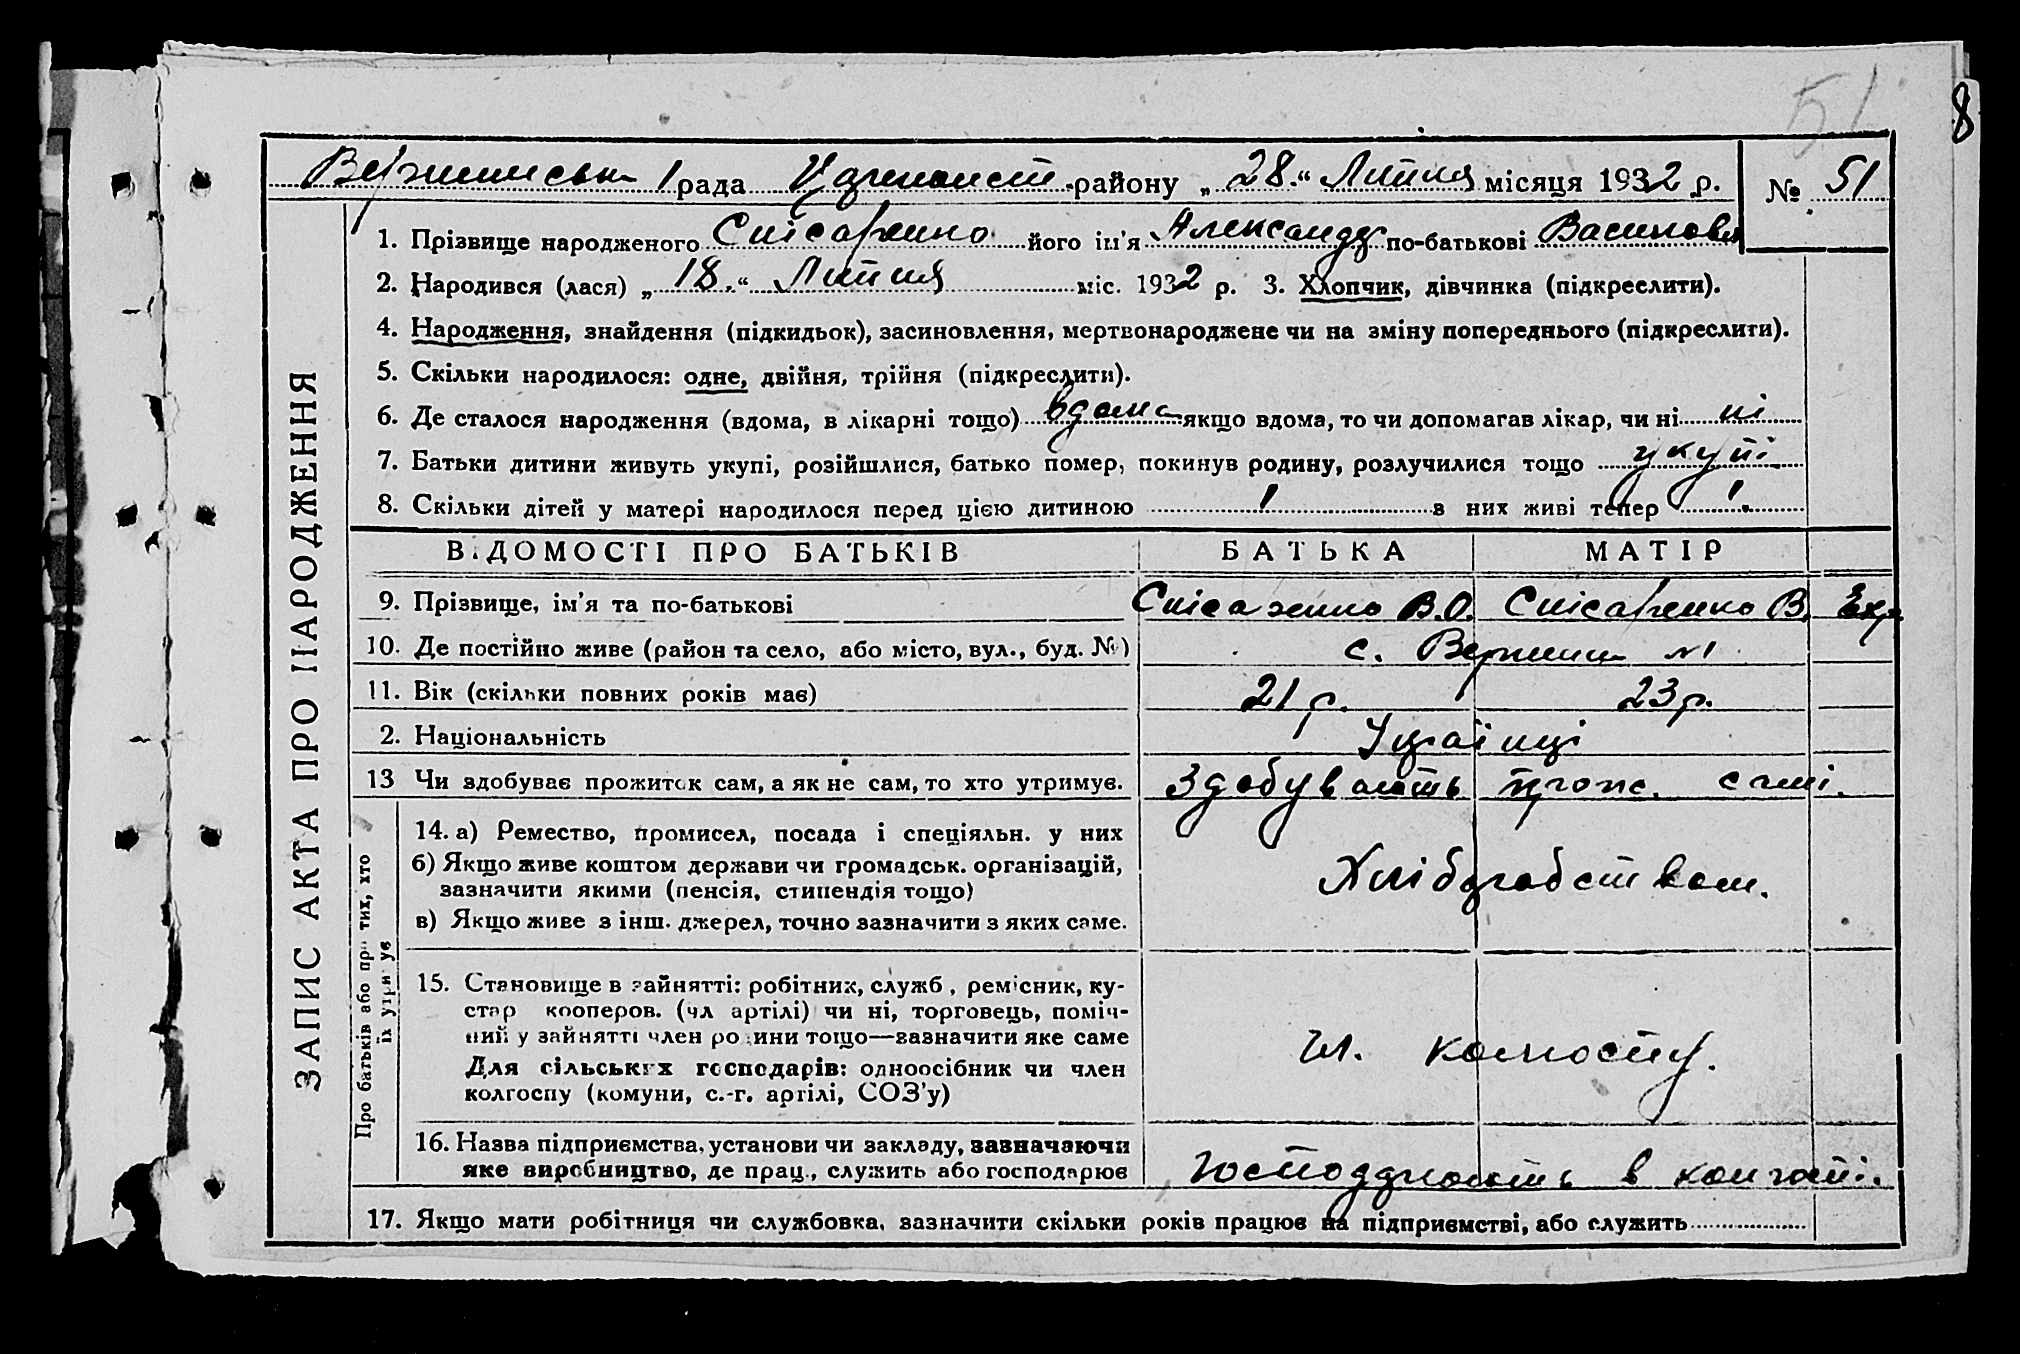 51
8
рада району „28.“ Липня місяця 1932 р. № 51
ЗАПИС АКТА ПРО НАРОДЖЕННЯ
1. Прізвище народженого Спісаренко його ім'я Александр по-батькові
2. Народився (лася) „18.“ Липня міс. 1932 р. 3. Хлопчик, дівчинка (підкреслити).
4. Народження, знайдення (підкидьок), засиновлення, мертвонароджене чи на зміну попереднього (підкреслити).
5. Скільки народилося: одне, двійня, трійня (підкреслити).
6. Де сталося народження (вдома, в лікарні тощо) вдома якщо вдома, то чи допомагав лікар, чи ні ні
7. Батьки дитини живуть укупі, розійшлися, батько помер, покинув родину, розлучилися тощо укупі
8. Скільки дітей у матері народилося перед цією дитиною 1 з них живі тепер 1.
ВІДОМОСТІ ПРО БАТЬКІВ БАТЬКА МАТІР
9. Прізвище, ім'я та по-батькові Спісаренко В.О. Спісаренко В.
10. Де постійно живе (район та село, або місто, вул., буд. №) с. Вершини №1
11. Вік (скільки повних років має) 21 р. 23 р.
2. Національність Українці
13 Чи здобуває прожиток сам, а як не сам, то хто утримує. Здобувають прож. самі.
Про батьків або про тих, хто
їх утримує
14. а) Ремество, промисел, посада і спеціяльн. у них
б) Якщо живе коштом держави чи громадськ. організацій,
зазначити якими (пенсія, стипендія тощо)
Хліборобством.
в) Якщо живе з інш. джерел, точно зазначити з яких саме.
15. Становище в зайнятті: робітник, служб, ремісник, ку-
стар кооперов. (чл артілі) чи ні, торговець, поміч-
ний у зайнятті член родини тощо—зазначити яке саме
чл. колгоспу.
Для сільських господарів: одноосібник чи член
колгоспу (комуни, с.-г. артілі, СОЗ'у)
16. Назва підприємства, установи чи закладу, зазначаючи
яке виробництво, де прац., служить або господарює в колгоспі.
17. Якщо мати робітниця чи службовка, зазначити скільки років працює на підприємстві, або служить